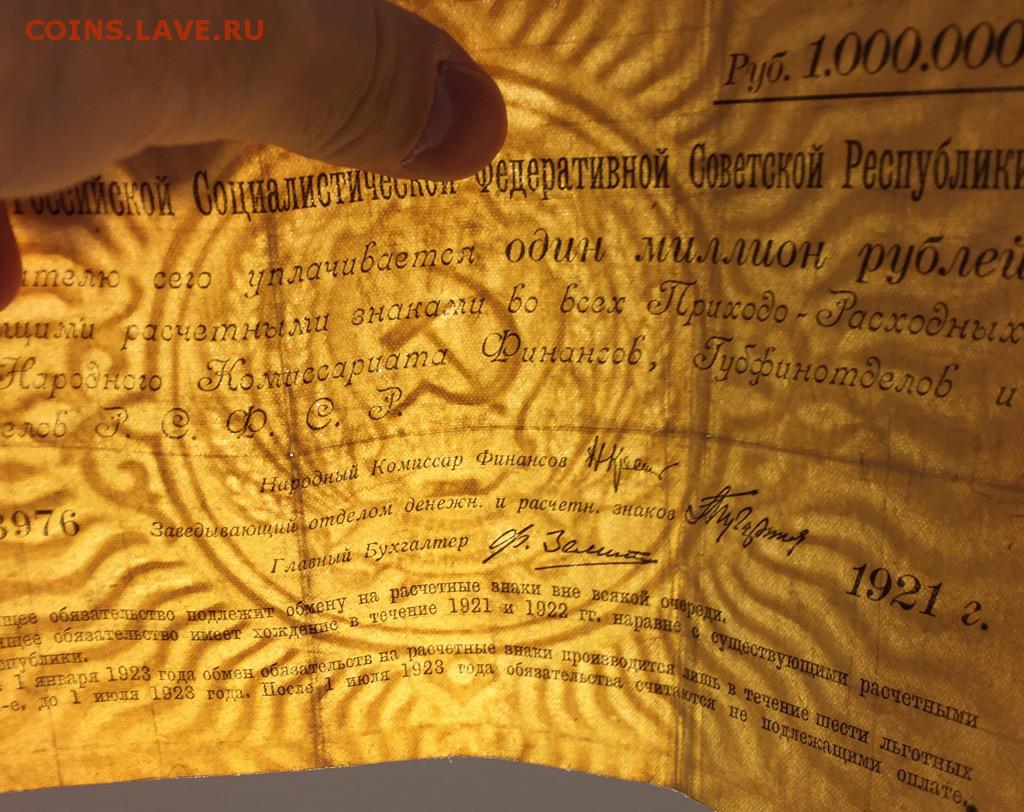 COINS.LAVE.RU
Руб. 1.000.000
Российской Социалистической Федеративной Советской Республики
ителю сего уплачивается один миллион рублей
щими расчетными знаками во всех Приходо-Расходных
Народного Комиссариата Финансов, Губфинотделов и
елов Р. С. Ф. С. Р.
Народный Комиссар Финансов
3976
Заведывающий отделом денежн. и расчетн. знаков
Главный Бухгалтер
1921 г.
щее обязательство подлежит обмену на расчетные знаки вне всякой очереди.
ящее обязательство имеет хождение в течение 1921 и 1922 гг. наравне с существующими расчетными
спублики.
1 января 1923 года обмен обязательств на расчетные знаки производится лишь в течение шести льготных
-е. до 1 июля 1923 года. После 1 июля 1923 года обязательства считаются не подлежащими оплате.